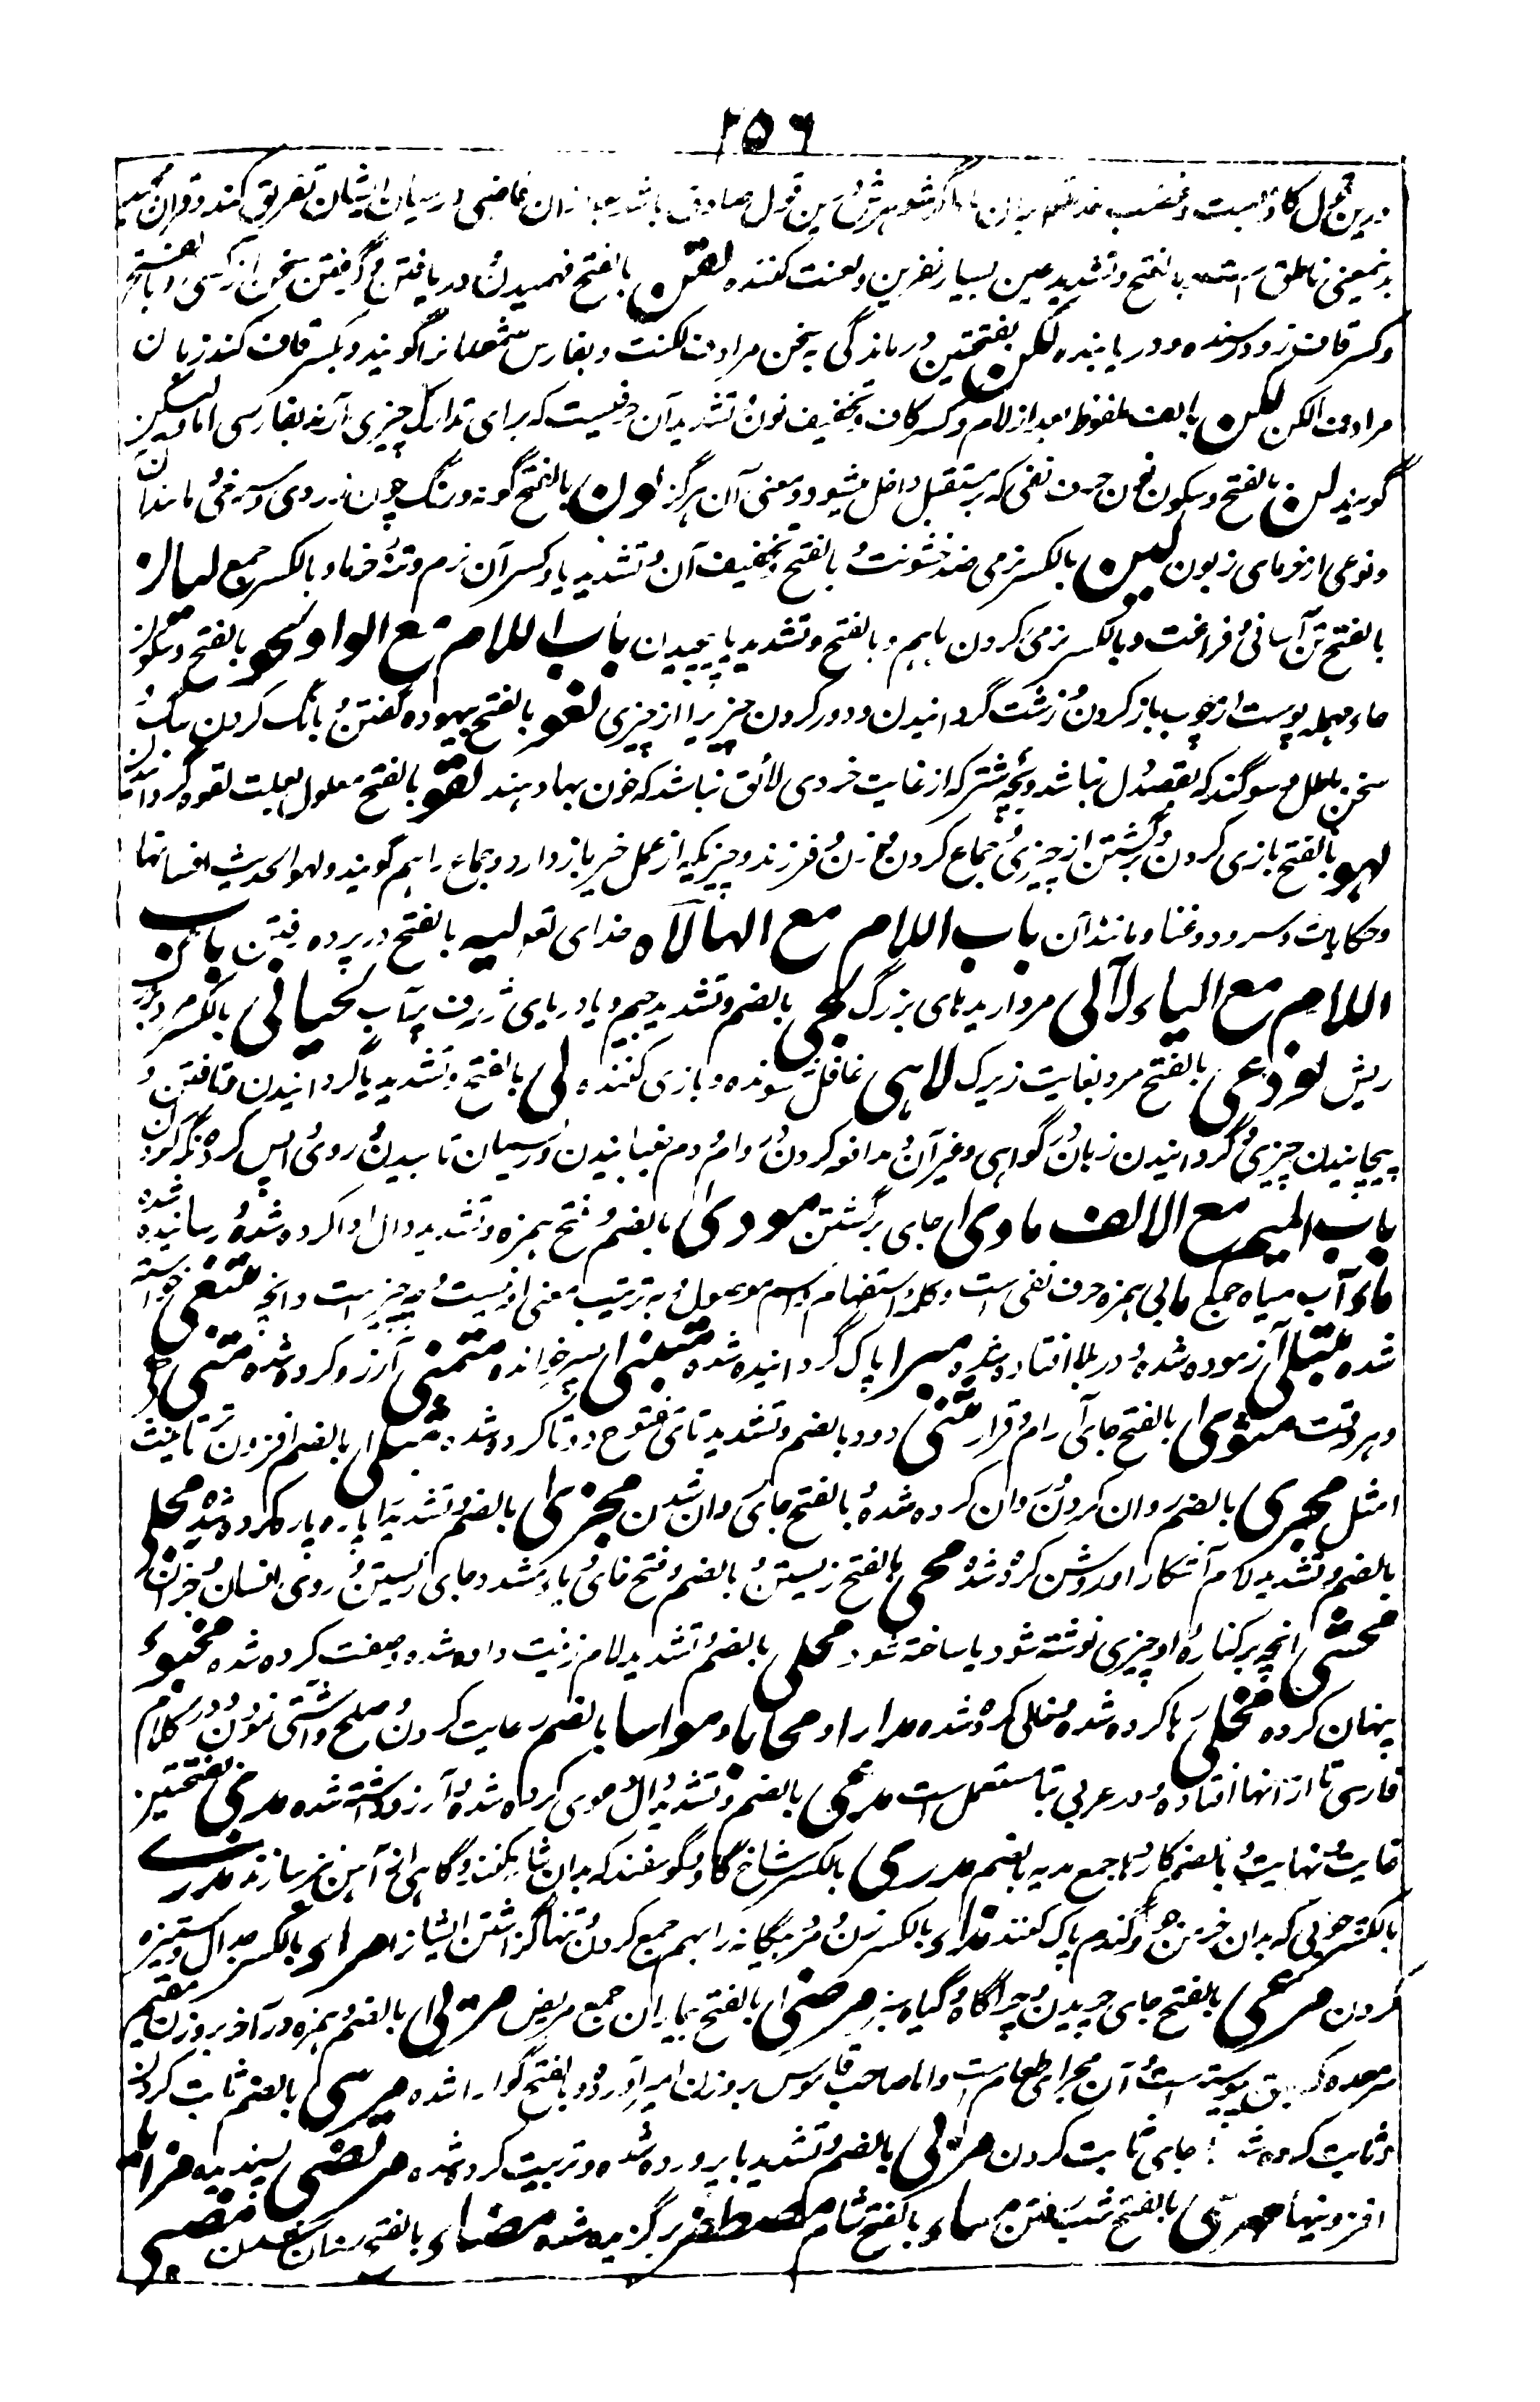 ۲۵۶
درین قول کاذب است و غضب خدا بر من اگر شوهرش درین قول صادق باشد بعد ازان قاضی درمیان ایشان تفریق کند و قران
بدینمعنی ناطق است بالفتح و تشدید عین بسیار نفرین و لعنت کننده لقن بالفتح فهمیدن و دریافتن و گرفتن سخن از کسی و بالفتح
و کسر قاف زود رسنده و دریابنده لکن بفتحتین درماندگی به سخن مرادف لکنت و بفارسی شمعدانرا گویند و بکسر کاف کند زبان
مرادف الکن لکن بالف ملفوظ بعد از لام و کسر کاف و تخفیف نون و تشدید آن حرفیست که برای تدارک چیزی آرند بفارسی اما و لیکن
گویند لن بالفتح و سکون نون حرف نفی که بر مستقبل داخل میشود و معنی آن هرگز لون بالفتح گونه و رنگ چون زردی و سرخی و مانند آن
و نوعی از خرمای زبون لین بالکسر نرمی ضد خشونت و بالفتح و تخفیف آن و تشدید یا و کسر آن نرم و تنهٔ خرما و بالکسر جمع لیان
بالفتح تن آسانی و فراغت و بالکسر نرمی کردن باهم و بالفتح و تشدید یا پیچیدن باب اللام مع الواو لحو بالفتح و سکون
حاء مهمله پوست از چوب باز کردن و زشت گردانیدن و دور کردن چیزیرا از چیزی لغو بالفتح بیهوده گفتن و بانگ کردن سگ و
سخن باطل و سوگند که بقصد دل نباشد و بچه شتر که از غایت خردی لائق نباشد که خون بها دهند لقو بالفتح معلول بعلت لقوه گردانیدن
لهو بالفتح بازی کردن و برگشتن از چیزی و جماع کردن و زن و فرزند و چیزیکه از عمل خیر باز دارد و جماع را هم گویند و لهو الحدیث افسانها
و حکایات و سرود و غنا و مانند آن باب اللام مع الها لاه خدای تعو لیه بالفتح در پرده رفتن باب
اللام مع الیاء لآلی مرواریدهای بزرگ لجی بالضم و تشدید جیم و یا دریای ژرف پر آب لحیانی بالکسر مرد بزرگ
ریش لوذعی بالفتح مرد بغایت زیرک لاهی غافل شونده و بازی کننده لی بالفتح و تشدید یا گردانیدن و تافتن و
پیچانیدن چیزی و گردانیدن زبان و گواهی و غیر آن و مدافعه کردن وام و دم جنبانیدن و ریسمان تابیدن و روی واپس کرده نگه کردن
باب المیم مع الالف ماوی جای برگشتن مودی بالضم و فتح همزه و تشدید دال ادا کرده شده و رسانیده شده
ماء آب میاه جمع ما بی همزه حرف نفی است و کلمه استفهام و اسم موصول و به ترتیب معنی او نیست و چه چیز است و آنچه مبتغی خواسته
شده مبتلی آزموده شده و در بلا افتاده شده مبرا پاک گردانیده شده متبنی پسر خوانده متمنی آرزو کرده شده متی هر
و هر وقت مثوی بالفتح جای آرام و قرار مثنی دو دو بالضم و تشدید نای مفتوح دو تا کرده شده مثلی بالضم افزون تر تانیث
امثل مجری بالضم روان کردن و روان کرده شده و بالفتح جای روان شدن مجزی بالضم و تشدید زا پاره پاره کرده شده مجلی
بالضم و تشدید لام آشکارا و روشن کرده شده محیی بالفتح زیستن و بالضم و فتح حا و یاء مشدد جای زیستن و روی انسان و جز آن
محشی آنچه بر کنارهٔ او چیزی نوشته شود یا ساخته شود محلی بالضم و تشدید لام زینت داده شده و صفت کرده شده مخبوء
پنهان کرده مخلی رها کرده شده و خالی کرده شده مدارا و محابا و مواسا بالضم رعایت کردن و صلح و آشتی نمودن و در کلام
فارسی تا از آنها افتاده و در عربی بتا مستعمل است مدعی بالضم و تشدید دال دعوی کرده شده و آرزو داشته شده مدی بفتحتین
غایت و نهایت و بالضم کاردها جمع مدیه بالضم مدری بالکسر شاخ گاو و گوسفند که بدان شانه کنند و گاهی از آهن نیز سازند مدری
بالکسر چوبی که بدان خرمن جو و گندم پاک کنند مذاء بالکسر زن و مرد بیگانه را بهم جمع کردن و تنها گذاشتن ایشانرا مراء بالکسر جدال و ستیزه
کردن مرعی بالفتح جای چریدن و چراگاه و گیاه سبز مرضی بالفتح بیماران جمع مریض مرئی بالفتح و همزه در آخر بروزن مقیم
سر معده که بحلق پیوسته است و آن مجرای طعام است و اما صاحب قاموس بروزن امیر آورده و بالفتح گوارا شده مرسی بالضم ثابت کردن
و ثابت کرده شده و جای ثابت کردن مربی بالضم و تشدید با پرورده شده و تربیت کرده شده مرتضی پسندیده مزایا
افزونیها مسری بالفتح شب رفتن مساء بالفتح شام مصطفی برگزیده شده مضاء بالفتح